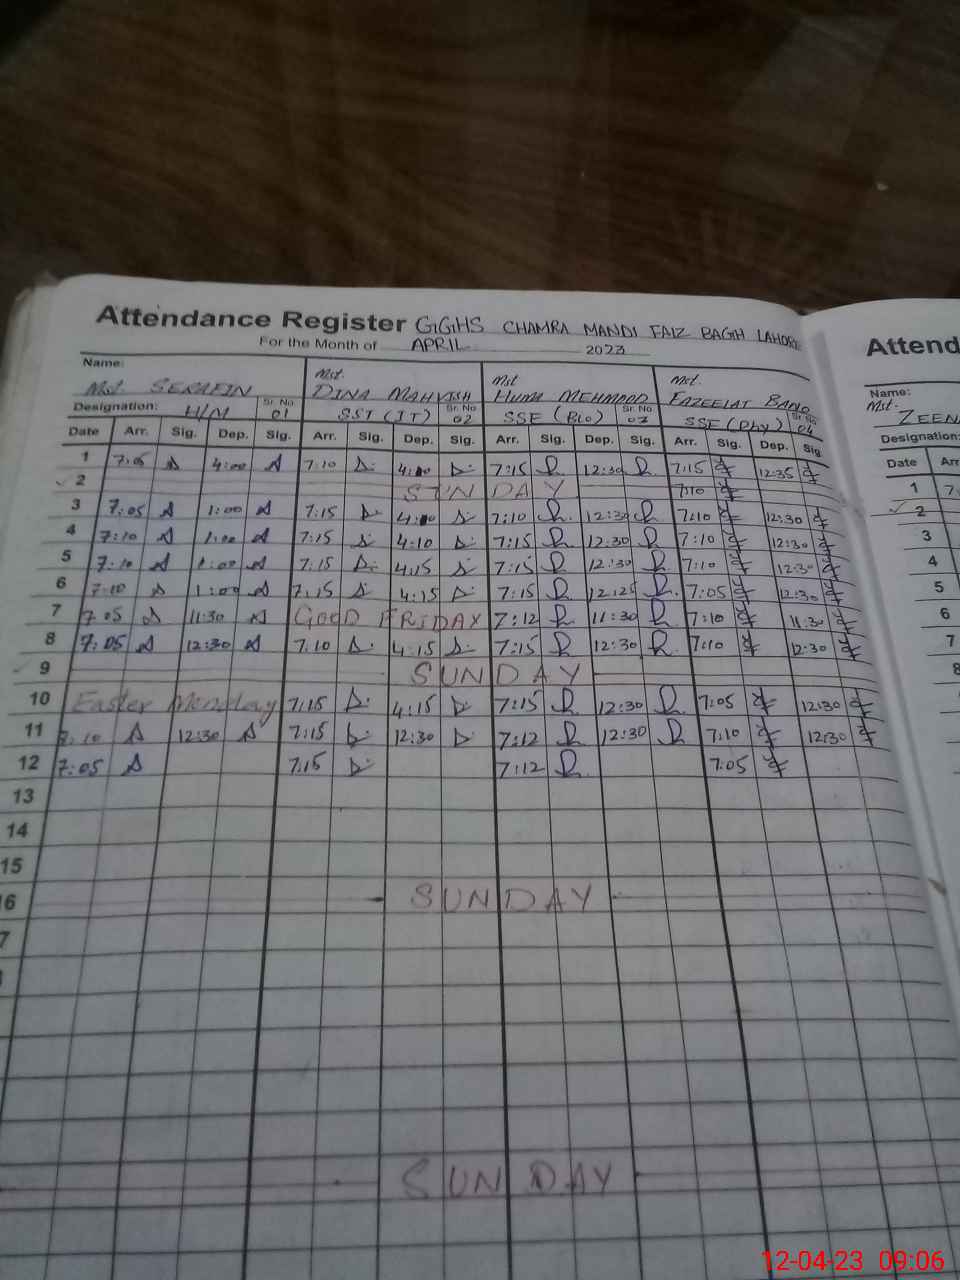 Attendance Register GGHS CHAMRA MANDI FAIZ BAGH LAHORE
For the Month of APRIL 2023
Name: Mst. SERAFIN Mst. DINA MAHVISH Mst HUMA MEHMOOD Mst. FAZEELAT BANO
Designation: H/M Sr. No 01 SST (IT) Sr. No 02 SSE (Bio) Sr. No 03 SSE (Phy) Sr. No 04
Date Arr. Sig. Dep. Sig. Arr. Sig. Dep. Sig. Arr. Sig. Dep. Sig. Arr. Sig. Dep. Sig
1 7:05 4:00 7:10 7:15 12:30 7:15 12:35
2 SUNDAY 7:10
3 7:05 1:00 7:15 7:10 12:30 7:10 12:30
4 7:10 1:00 7:15 4:10 7:15 12:30 7:10 12:30
5 7:10 1:00 7:15 4:15 7:15 12:30 7:10 12:30
6 7:10 1:00 7:15 4:15 7:15 12:25 7:05 12:30
7 7:05 11:30 GOOD FRIDAY 7:12 11:30 7:10 11:30
8 7:05 12:30 7:10 4:15 7:15 12:30 7:10 12:30
9 SUNDAY
10 Easter Monday 7:15 4:15 7:15 12:30 7:05 12:30
11 7:10 12:30 7:15 12:30 7:12 12:30 7:10 12:30
12 7:05 7:15 7:12 7:05
13
14
15
6 SUNDAY
7
SUNDAY
Attend
Name:
Mst. ZEEN
Designation:
Date Arr
1 7
2
3
4
5
6
7
8
12-04-23 09:06